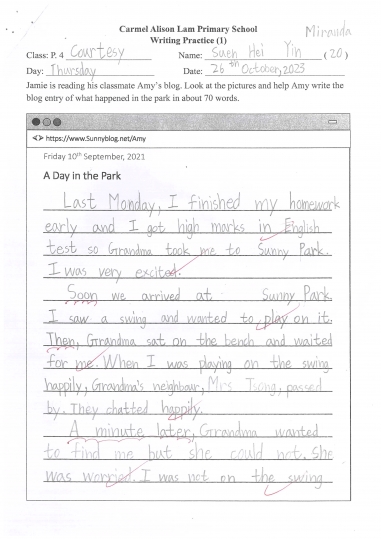 Carmel Alison Lam Primary School
Writing Practice (1)
Miranda
Class: P. 4 Courtesy Name: Suen Hei Yin (20)
Day: Thursday Date: 26th October, 2023
Jamie is reading his classmate Amy's blog. Look at the pictures and help Amy write the
blog entry of what happened in the park in about 70 words.
<> https://www.Sunnyblog.net/Amy
Friday 10th September, 2021
A Day in the Park
Last Monday, I finished my homework
early and I got high marks in English
test so Grandma took me to Sunny Park.
I was very excited.
Soon we arrived at Sunny Park.
I saw a swing and wanted to play on it.
Then, Grandma sat on the bench and waited
for me. When I was playing on the swing
happily, Grandma's neighbour, Mrs Tsang, passed
by. They chatted happily.
A minute later, Grandma wanted
to find me but she could not. She
was worried. I was not on the swing